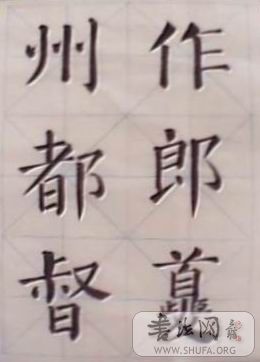 作郎夔
州都督
書法网
WWW.SHUFA.ORG